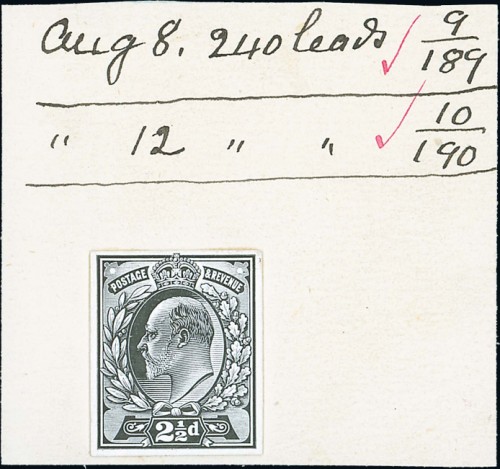 Aug 8. 240 leads 9/189
" 12 " " 10/190
POSTAGE & REVENUE
2½d